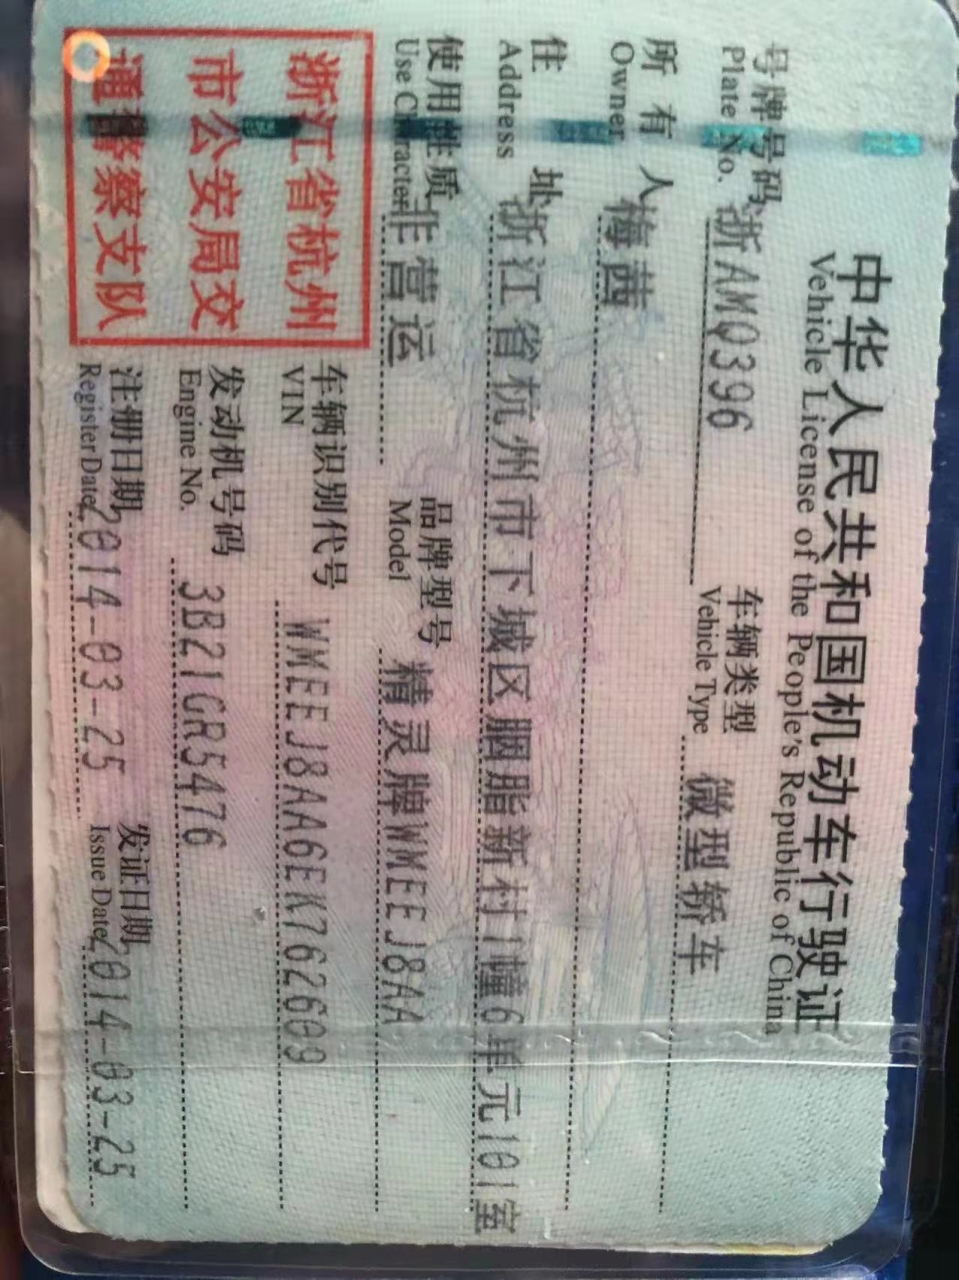 中华人民共和国机动车行驶证
Vehicle License of the People's Republic of China
号牌号码 浙AMQ396 车辆类型 微型轿车
Plate No. Vehicle Type
所有人 梅茜
Owner
住址 浙江省杭州市下城区胭脂新村1幢6单元101室
Address
使用性质 非营运 品牌型号 精灵牌WMEEJ8AA
Use Character Model
浙江省杭州
市公安局交
通警察支队
车辆识别代号 WMEEJ8AA6EK762609
VIN
发动机号码 3B21GR5476
Engine No.
注册日期 2014-03-25 发证日期 2014-03-25
Register Date Issue Date